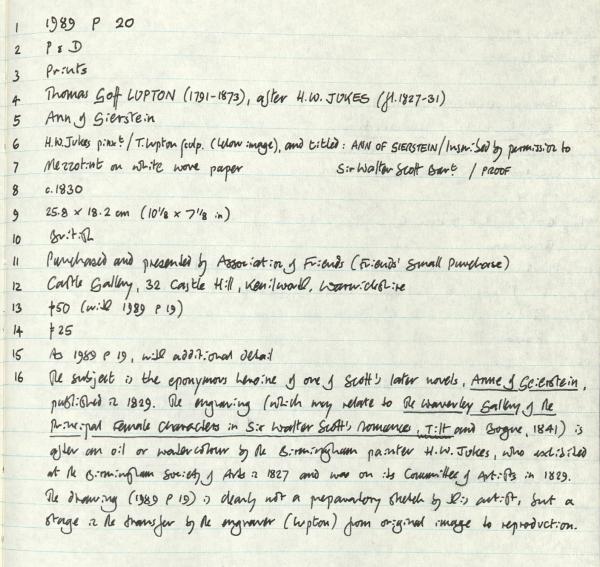 1 1989 P 20
2 P & D
3 Prints
4 Thomas Goff LUPTON (1791-1873), after H.W. JUKES (fl.1827-31)
5 Ann of Gierstein
6 H.W. Jukes pinxt / T. Lupton sculp. (below image), and titled: ANN OF GIERSTEIN / Inscribed by permission to
7 Mezzotint on white wove paper Sir Walter Scott Bart / PROOF
8 c.1830
9 25.8 x 18.2 cm (10 1/8 x 7 1/8 in)
10 British
11 Purchased and presented by Association of Friends (Friends' Small Purchase)
12 Castle Gallery, 32 Castle Hill, Kenilworth, Warwickshire
13 £50 (with 1989 P 19)
14 £25
15 As 1989 P 19, with additional detail
16 The subject is the eponymous heroine of one of Scott's later novels, Anne of Geierstein,
published in 1829. The engraving (which may relate to The Waverley Gallery of the
Principal Female Characters in Sir Walter Scott's Romances, Tilt and Bogue, 1841) is
after an oil or watercolour by the Birmingham painter H.W. Jukes, who exhibited
at the Birmingham Society of Arts in 1827 and was on its Committee of Artists in 1829.
The drawing (1989 P 19) is clearly not a preparatory sketch by this artist, but a
stage in the transfer by the engraver (Lupton) from original image to reproduction.